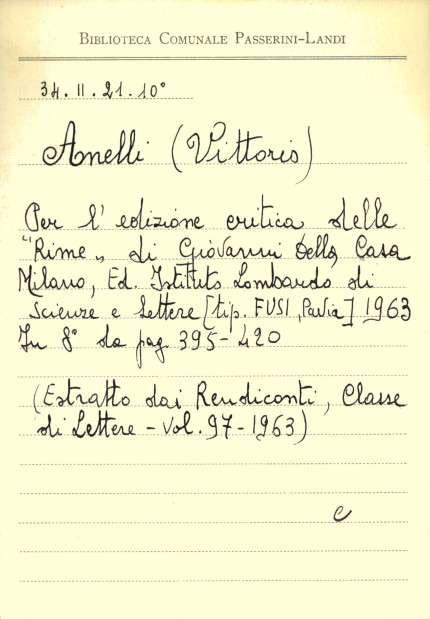 BIBLIOTECA COMUNALE PASSERINI-LANDI
34.II.21.10°
Anelli (Vittorio)
Per l' edizione critica delle
"Rime„ di Giovanni Della Casa
Milano, Ed. Istituto Lombardo di
Scienze e Lettere [tip. FUSI, Pavia] 1963
In 8° da pag. 395-420
(Estratto dai Rendiconti, Classe
di Lettere - Vol. 97 - 1963)
c